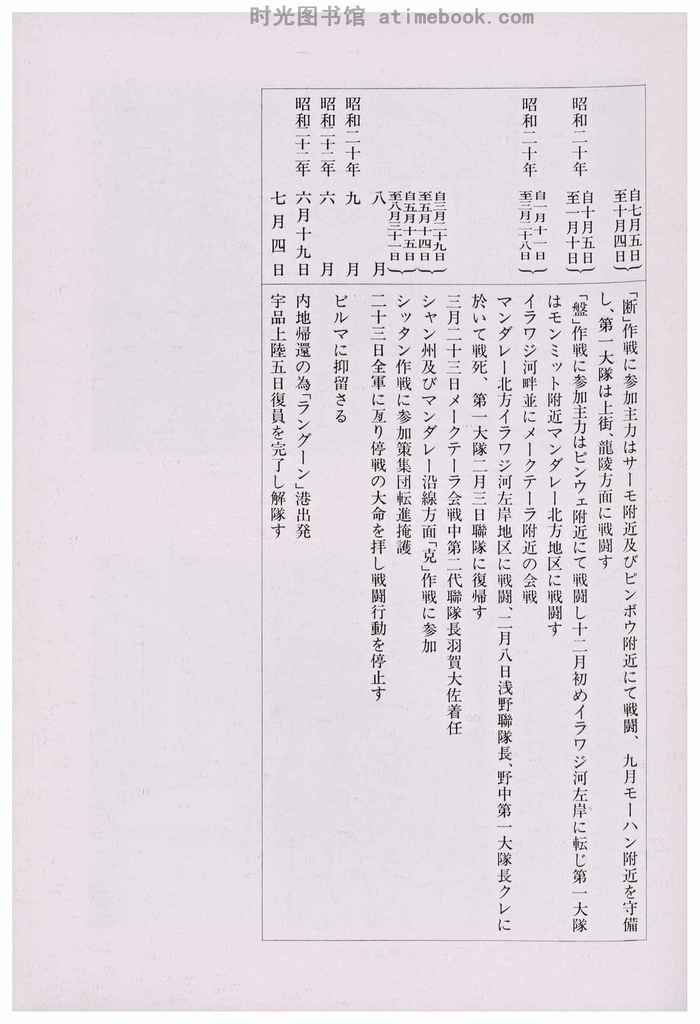 时光图书馆 atimebook.com
自七月五日
至十月四日
「断」作戦に参加主力はサーモ附近及びピンボウ附近にて戦闘、九月モーハン附近を守備
し、第一大隊は上街、龍陵方面に戦闘す
昭和二十年
自十月五日
至一月十日
「盤」作戦に参加主力はピンウェ附近にて戦闘し十二月初めイラワジ河左岸に転じ第一大隊
はモンミット附近マンダレー北方地区に戦闘す
昭和二十年
自一月十一日
至三月二十八日
イラワジ河畔並にメークテーラ附近の会戦
マンダレー北方イラワジ河左岸地区に戦闘、二月八日浅野聯隊長、野中第一大隊長クレに
於いて戦死、第一大隊二月三日聯隊に復帰す
三月二十三日メークテーラ会戦中第二代聯隊長羽賀大佐着任
自三月二十九日
至五月十四日
シャン州及びマンダレー沿線方面「克」作戦に参加
自五月十五日
至八月三十一日
シッタン作戦に参加策集団転進掩護
八月
二十三日全軍に亙り停戦の大命を拝し戦闘行動を停止す
昭和二十年 九月
昭和二十二年 六月
ビルマに抑留さる
昭和二十二年 六月十九日
内地帰還の為「ラングーン」港出発
七月四日
宇品上陸五日復員を完了し解隊す